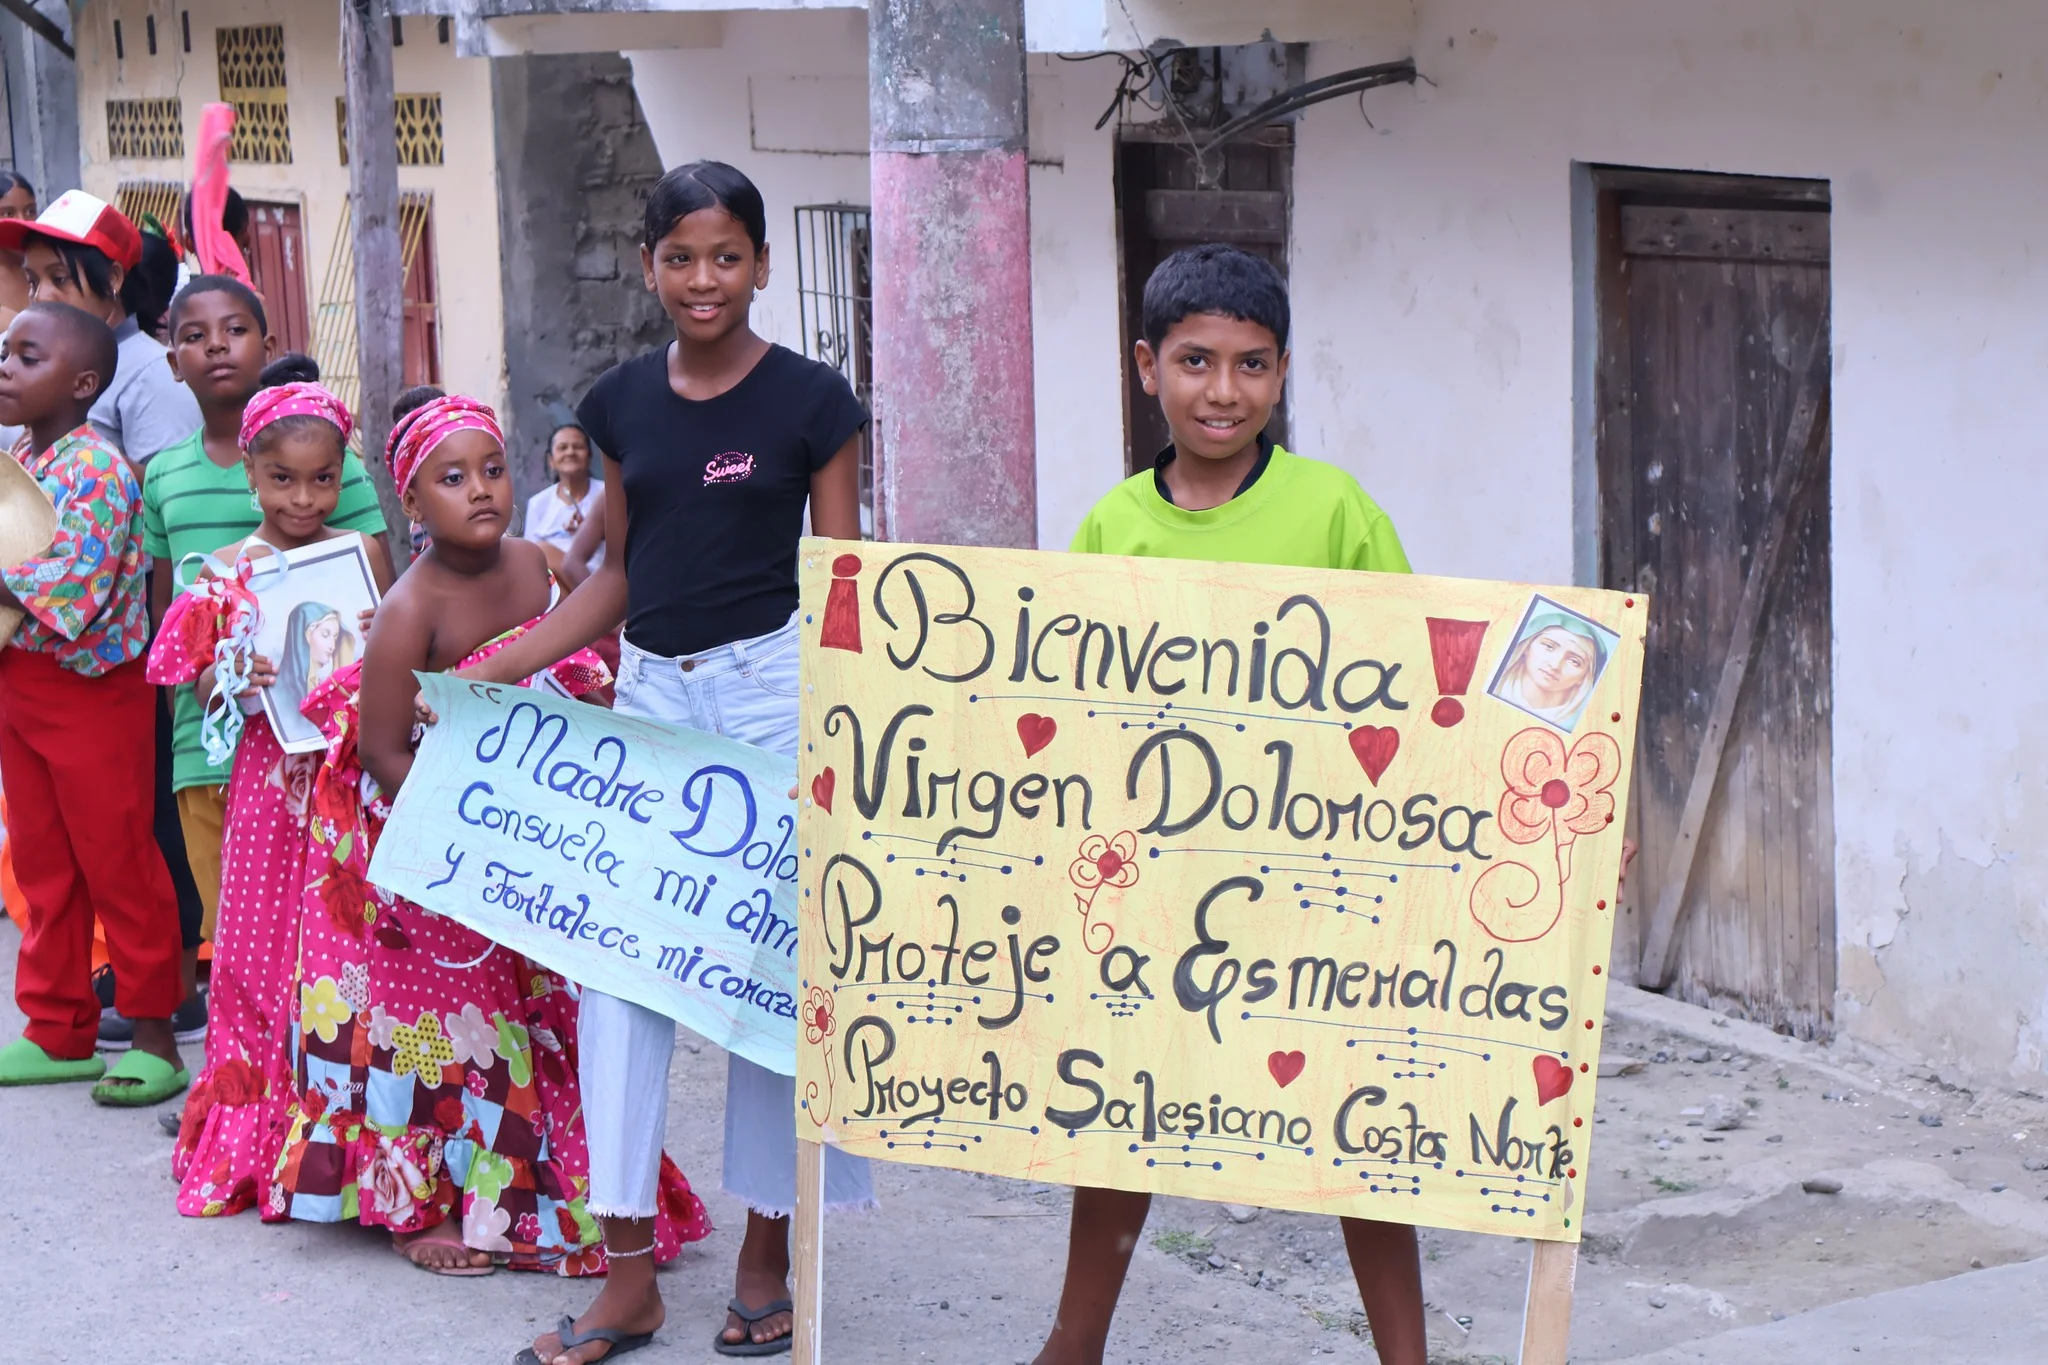 Sweet
"Madre Dolo
Consuela mi alm
y Fortalece mi coraz
¡Bienvenida!
Virgen Dolorosa
Proteje a Esmeraldas
Proyecto Salesiano Costa Norte